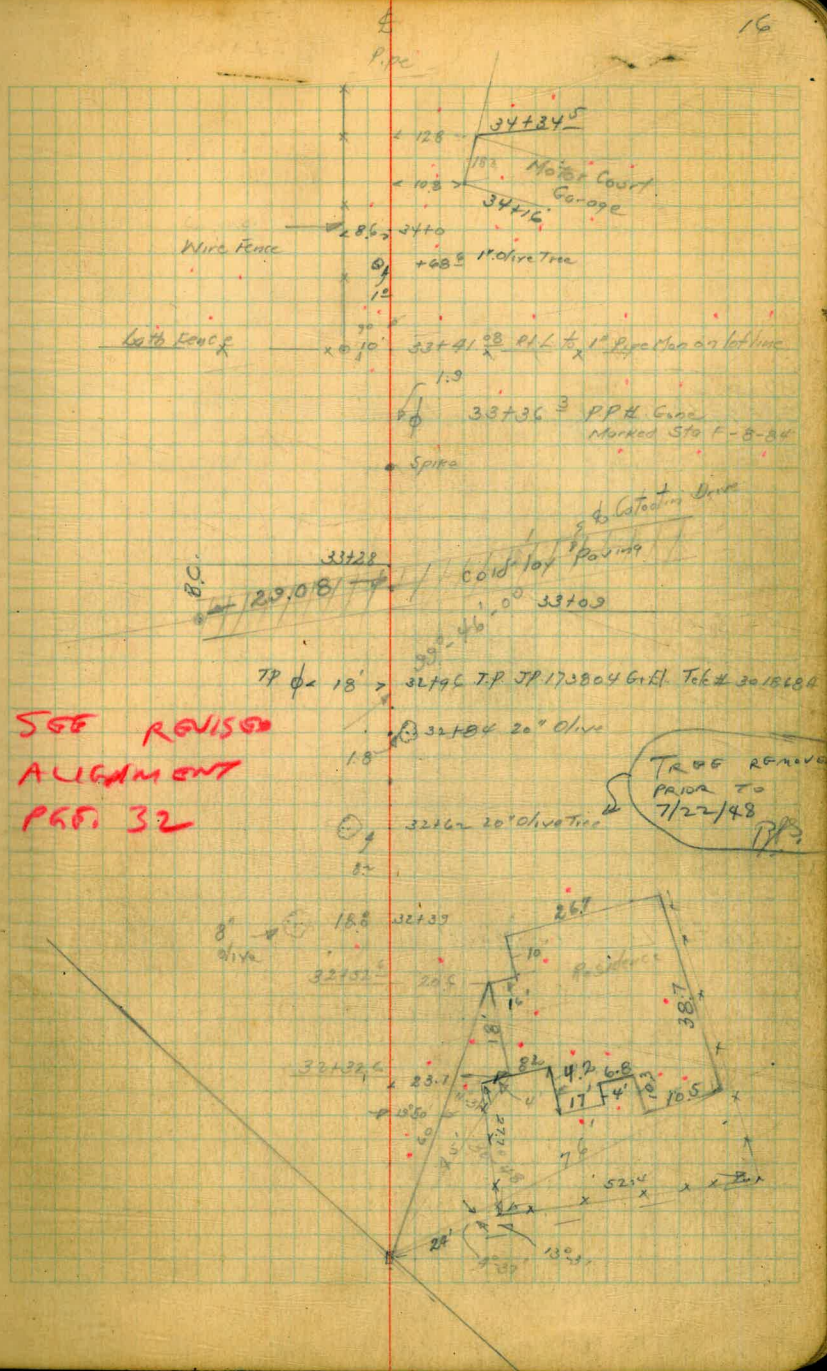 16
℄
Pipe
34+34⁵
128
183
Motor Court
Garage
108
34+16
8.6 34+0
Wire Fence
+68⁶ 1" Olive Tree
1⁰
90
Lath Fence
10' 33+41⁰⁸ Pt L to 1" Pipe Mon on lot line
1.9
33+36³ PP# Gone
Marked Sta F-8-84
Spike
℄ Catoctin Drive
33+28
Cold lay Paving
B.C.
29.08
33+09
99°-46'-0"
TP 18' 32+96 T.P. JP.173804 G+El. Tele# 301868A
SEE REVISED
ALIGNMENT
PGE. 32
32+84 20" Olive
1.8
TREE REMOVE
PRIOR TO
7/22/48
32+62 20" Olive Tree
8"
Olive
18.8 32+39
26.7
10'
Residence
32+32⁶ 20.6
18'
38.7
32+32.6
23.1
82 4.2 6.8
17' 4' 10.3 10.5
60
76
52.4
24'
13°-31